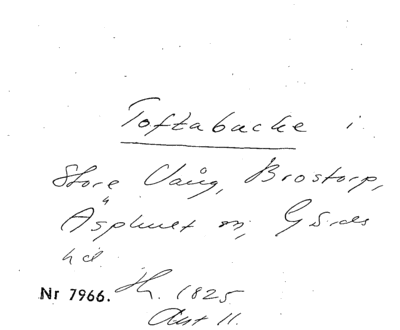 Toftabacke i
Store Vång, Brostorp,
Äsphult sn, Gärds
hd.
Nr 7966. Th. 1825
Akt 11.